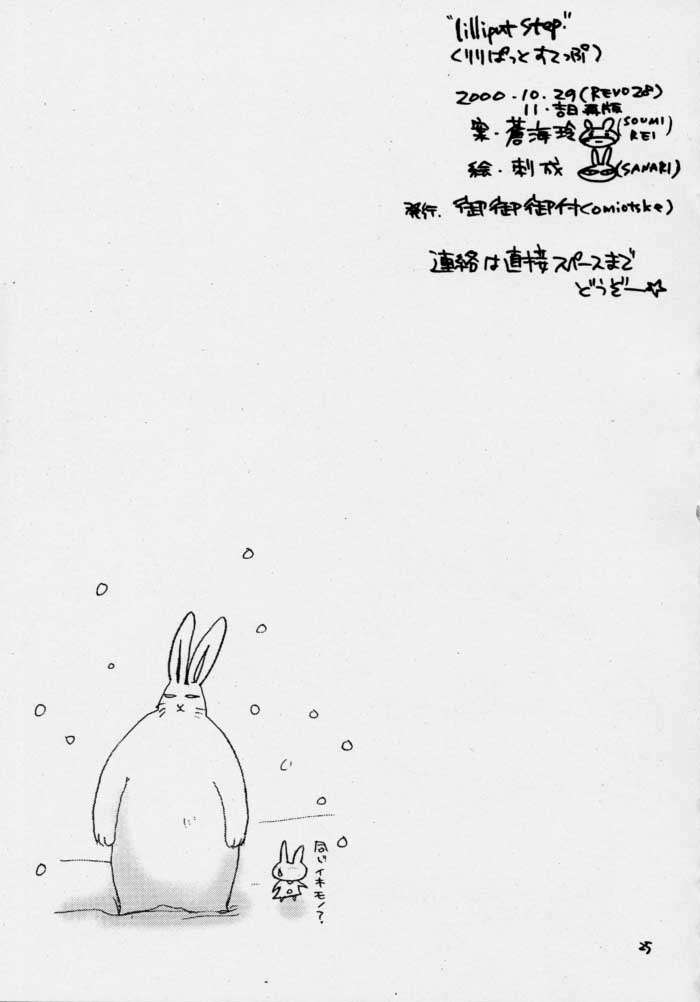 "lilliput step."
くりりぱっとすてっぷ)
2000.10.29(REVO28)
11.吉日再版
案・蒼海玲 (SOUMI REI)
絵・刺成 (SANARI)
発行.御御御付(omiotske)
連絡は直接スペースまで
どうぞー☆
同じイキモノ?
25